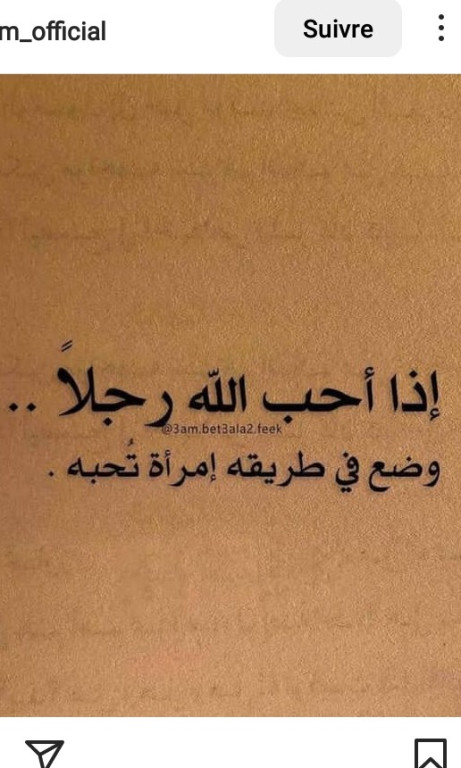 m_official
Suivre
إذا أحب الله رجلاً ..
@3am.bet3ala2.feek
وضع في طريقه إمرأة تُحبه .